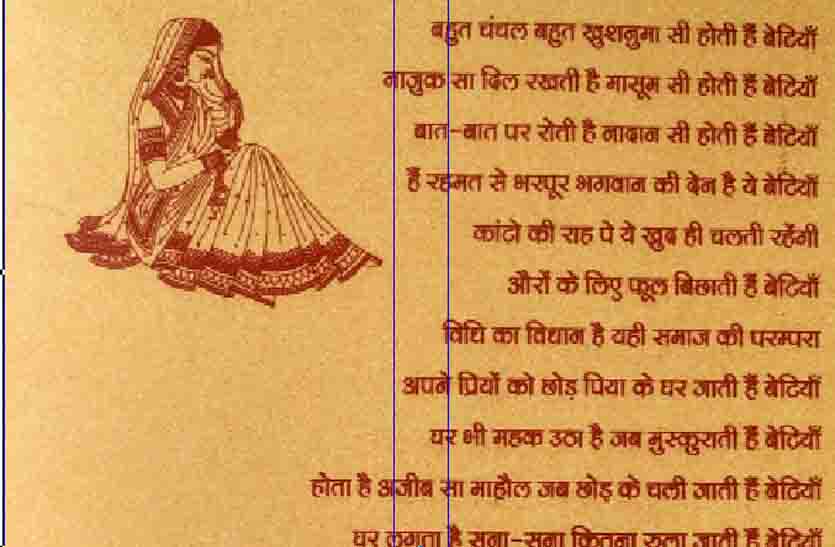 बहुत चंचल बहुत खुशनुमा सी होती हैं बेटियाँ
नाजुक सा दिल रखती है मासूम सी होती हैं बेटियाँ
बात-बात पर रोती है नादान सी होती हैं बेटियाँ
हैं रहमत से भरपूर भगवान की देन है ये बेटियाँ
कांटो की राह पे ये खुद ही चलती रहेंगी
औरों के लिए फूल बिछाती हैं बेटियाँ
विधि का विधान है यही समाज की परम्परा
अपने प्रियों को छोड़ पिया के घर जाती हैं बेटियाँ
घर भी महक उठा है जब मुस्कुराती हैं बेटियाँ
होता है अजीब सा माहौल जब छोड़ के चली जाती हैं बेटियाँ
घर लगता है सूना-सूना कितना रुला जाती हैं बेटियाँ